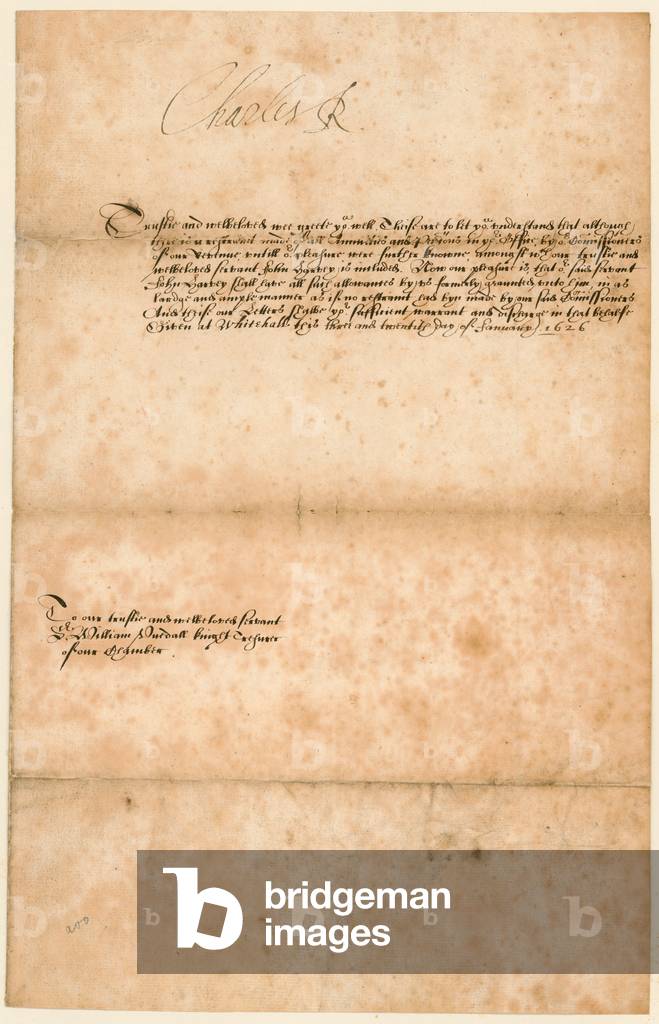 Charles R
Trustie and welbeloved wee greete yoᵘ well. Theise are to let yoᵘ understand that although
there is a restraint made of all Annuities and Pencions in yoʳ Office, by oʳ Comissioners
of our Revenue untill oʳ pleasure were further knowne, amongst wᶜʰ our trustie and
welbeloved servant John Harvey is included. Now our pleasure is, that oʳ said servant
John Harvey shall have all such allowances by us formerly graunted unto him, in as
lardge and ample manner as if no restraint had byn made by our said Comissioners
And theise our Letters shalbe yoʳ sufficient warrant and discharge in that behalfe
Given at Whitehall this three and twentith day of January 1626
To our trustie and welbeloved servant
Sʳ William Uvedall knight Tresurer
of our Chamber
bridgeman
images